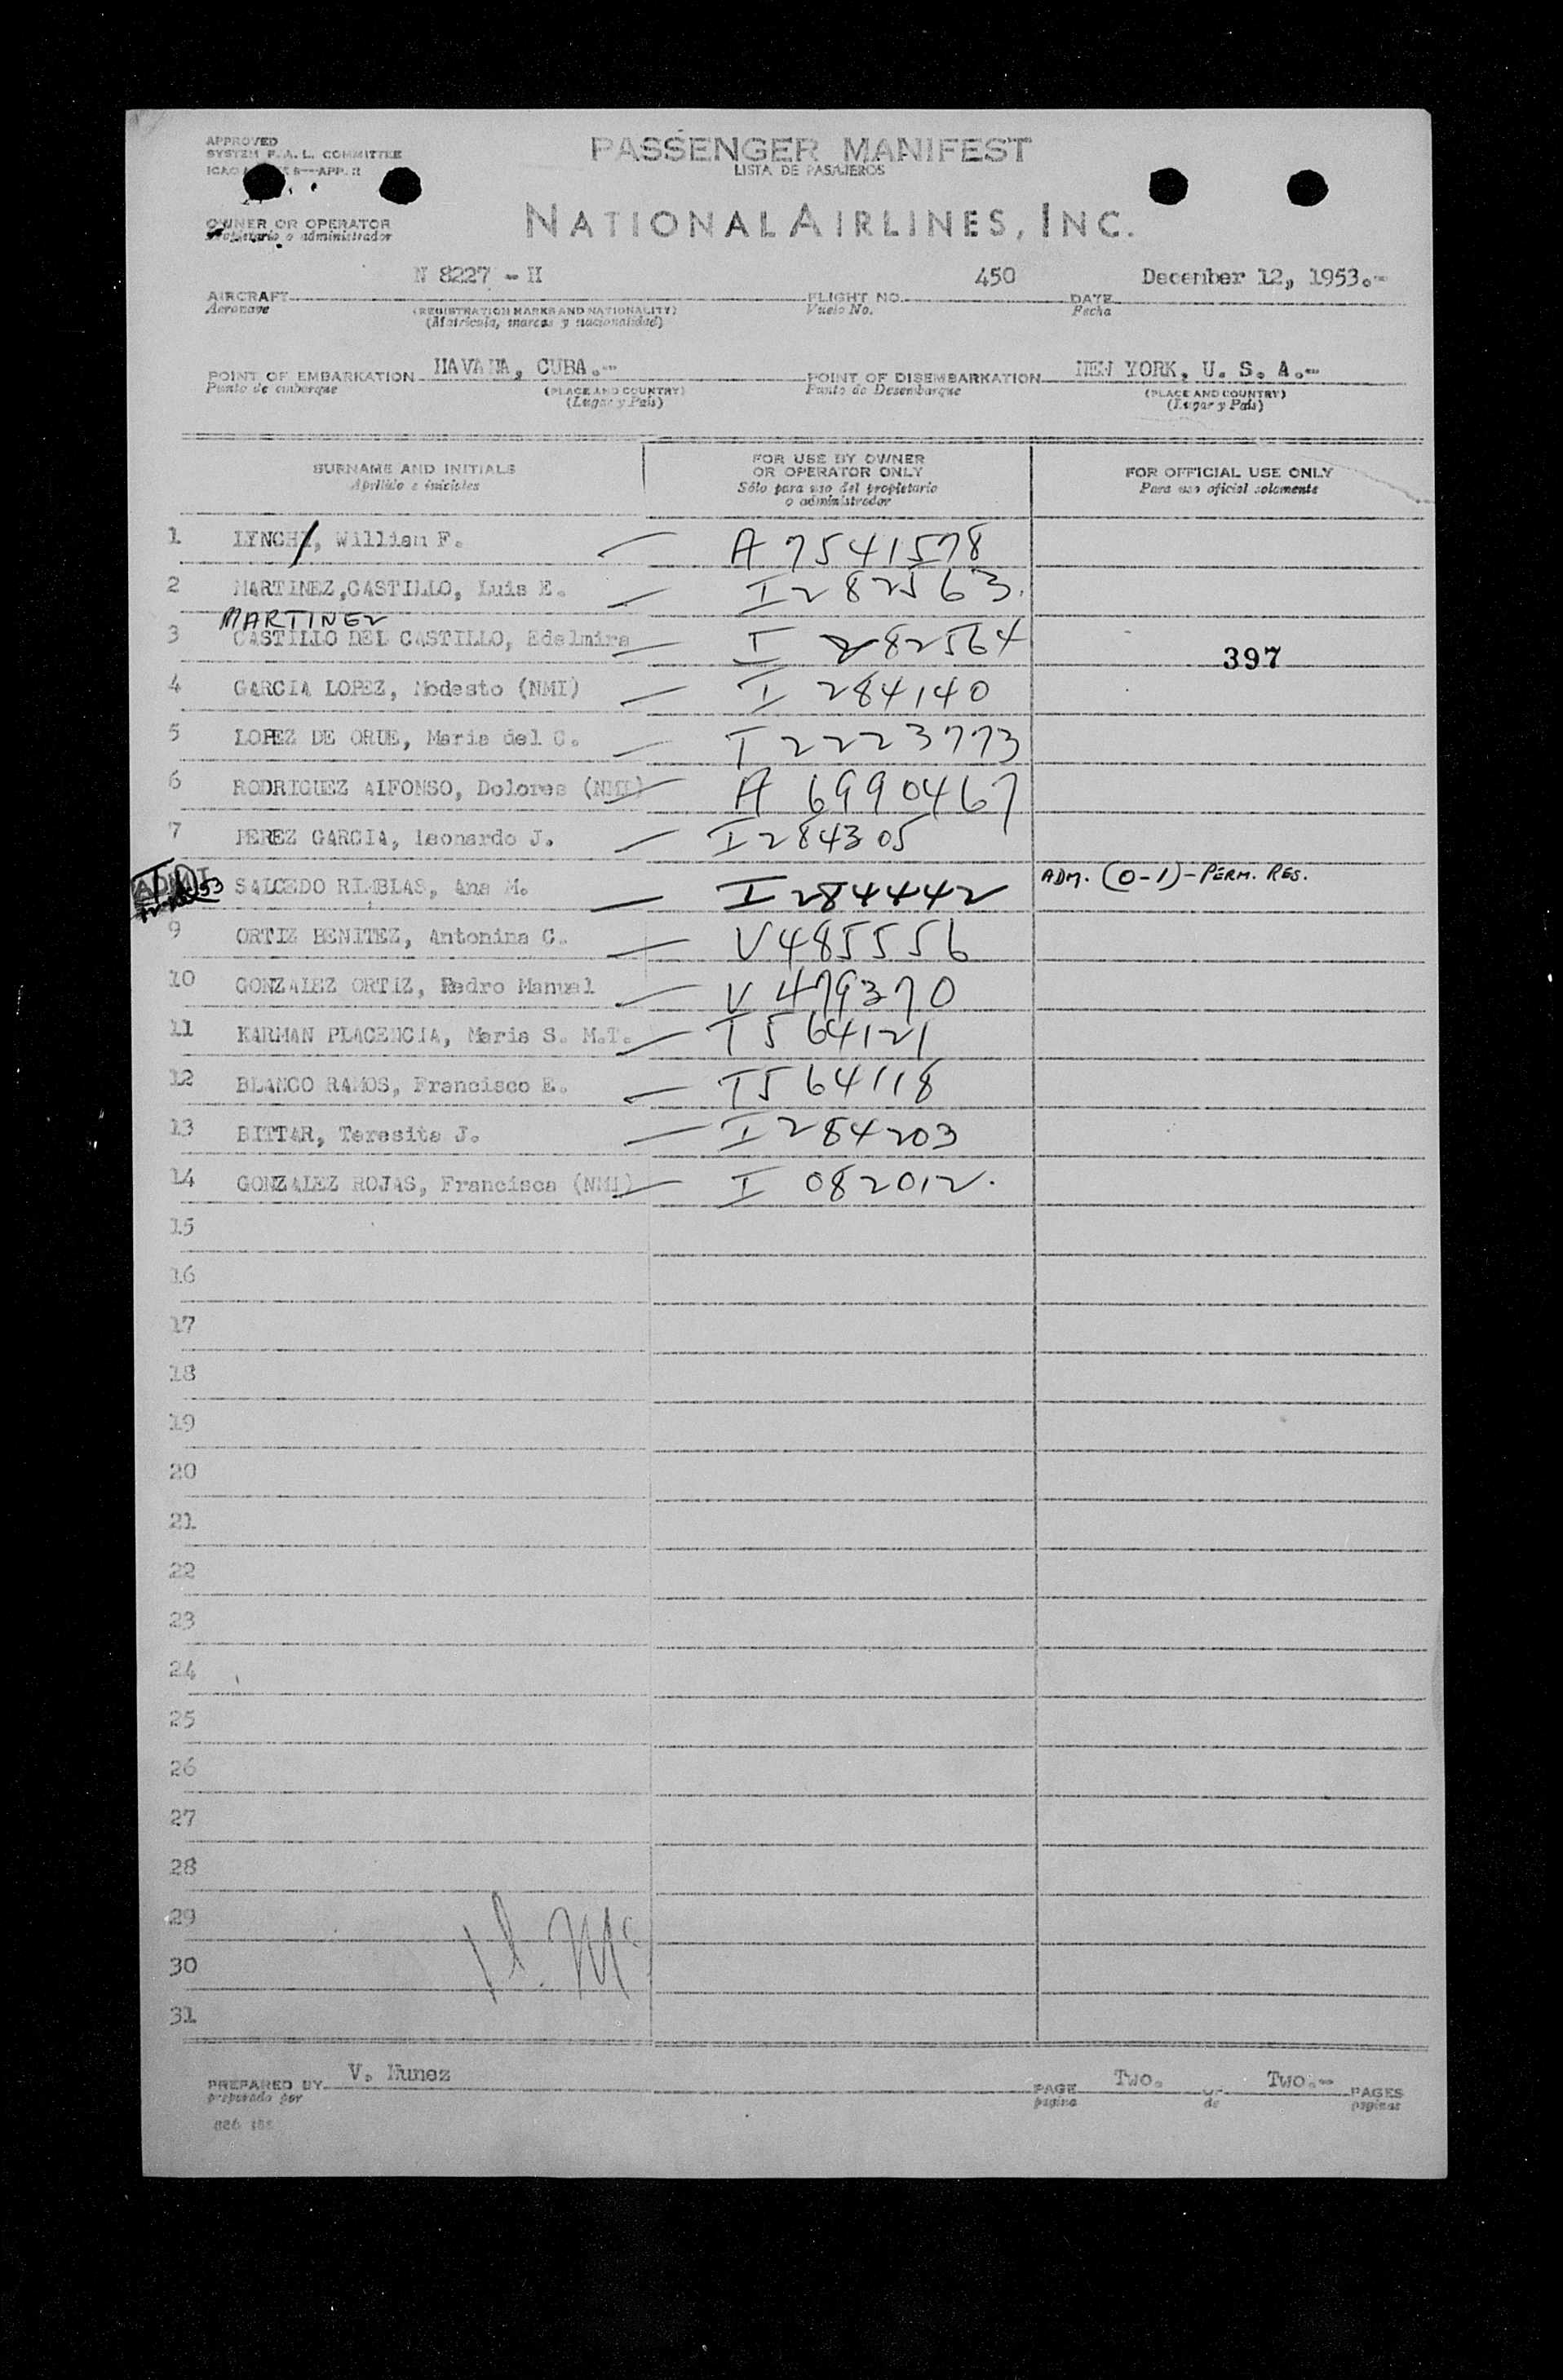 APPROVED
SYSTEM F. A. L. COMMITTEE
PASSENGER MANIFEST
LISTA DE PASAJEROS
OWNER OR OPERATOR
Propietario o administrador
NATIONAL AIRLINES, INC.
AIRCRAFT N 8227 - H FLIGHT NO. 450 DATE December 12, 1953.-
Aeronave (REGISTRATION MARKS AND NATIONALITY) Vuelo No. Fecha
(Matrícula, marcas y nacionalidad)
POINT OF EMBARKATION HAVANA, CUBA.- POINT OF DISEMBARKATION NEW YORK, U. S. A.-
Punto de embarque (PLACE AND COUNTRY) Punto de Desembarque (PLACE AND COUNTRY)
(Lugar y País) (Lugar y País)
SURNAME AND INITIALS
Apellido e iniciales
FOR USE BY OWNER
OR OPERATOR ONLY
Sólo para uso del propietario
o administrador
FOR OFFICIAL USE ONLY
Para uso oficial solamente
1 LYNCHY, William F. — A 7541578
2 MARTINEZ,CASTILLO, Luis E. — I 282563.
MARTINEZ
3 CASTILLO DEL CASTILLO, Edelmira — I 282564
397
4 GARCIA LOPEZ, Modesto (NMI) — I 284140
5 LOPEZ DE ORUE, Maria del C. — I 2223773
6 RODRIGUEZ ALFONSO, Dolores (NMI) — A 6990467
7 PEREZ GARCIA, Leonardo J. — I 284305
ADMI 53 SALCEDO RIMBLAS, Ana M. — I 284442 ADM. (O-1) - PERM. RES.
9 ORTIZ BENITEZ, Antonina C. — V 485556
10 GONZALEZ ORTIZ, Pedro Manual — V 479370
11 KARMAN PLACENCIA, Maria S. M.T. — I 564121
12 BLANCO RAMOS, Francisco E. — I 564118
13 BITTAR, Teresita J. — I 284203
14 GONZALEZ ROJAS, Francisca (NMI) — I 082012.
15
16
17
18
19
20
21
22
23
24
25
26
27
28
29
30
31
PREPARED BY V. Nunez PAGE Two. OF Two.- PAGES
preparado por página de páginas